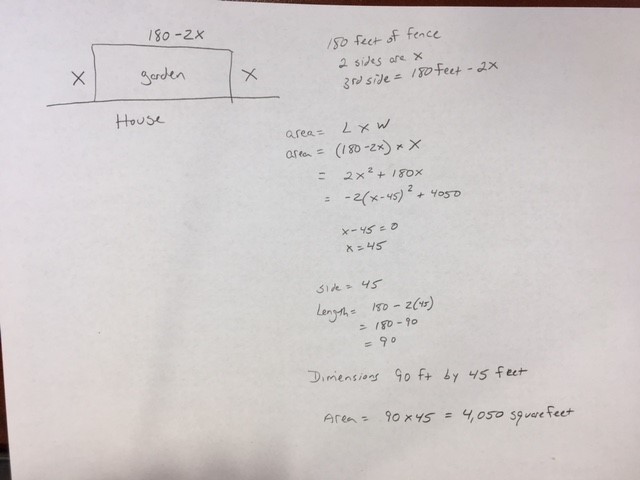 180-2X
X garden X
House
180 feet of fence
2 sides are x
3rd side = 180 feet - 2x
area = L x W
area = (180-2x) * X
= 2x² + 180x
= -2(x-45)² + 4050
x-45 = 0
x = 45
side = 45
Length = 180 - 2(45)
= 180 - 90
= 90
Dimensions 90 ft by 45 feet
Area = 90 x 45 = 4,050 square feet